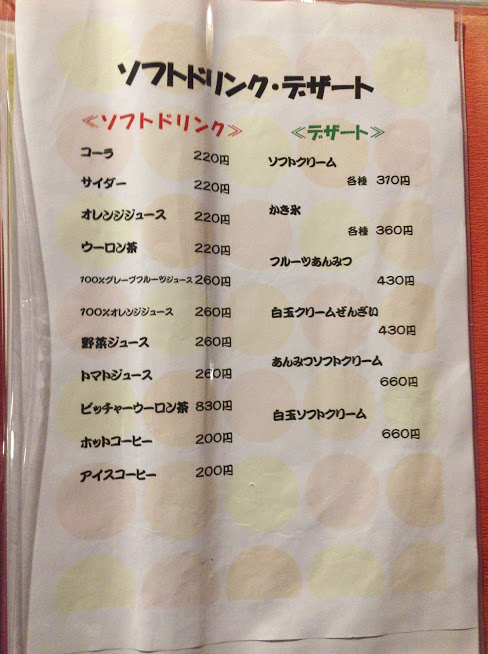 ソフトドリンク・デザート
≪ソフトドリンク≫
コーラ 220円
サイダー 220円
オレンジジュース 220円
ウーロン茶 220円
100%グレープフルーツジュース 260円
100%オレンジジュース 260円
野菜ジュース 260円
トマトジュース 260円
ピッチャーウーロン茶 830円
ホットコーヒー 200円
アイスコーヒー 200円
≪デザート≫
ソフトクリーム
各種 370円
かき氷
各種 360円
フルーツあんみつ
430円
白玉クリームぜんざい
430円
あんみつソフトクリーム
660円
白玉ソフトクリーム
660円